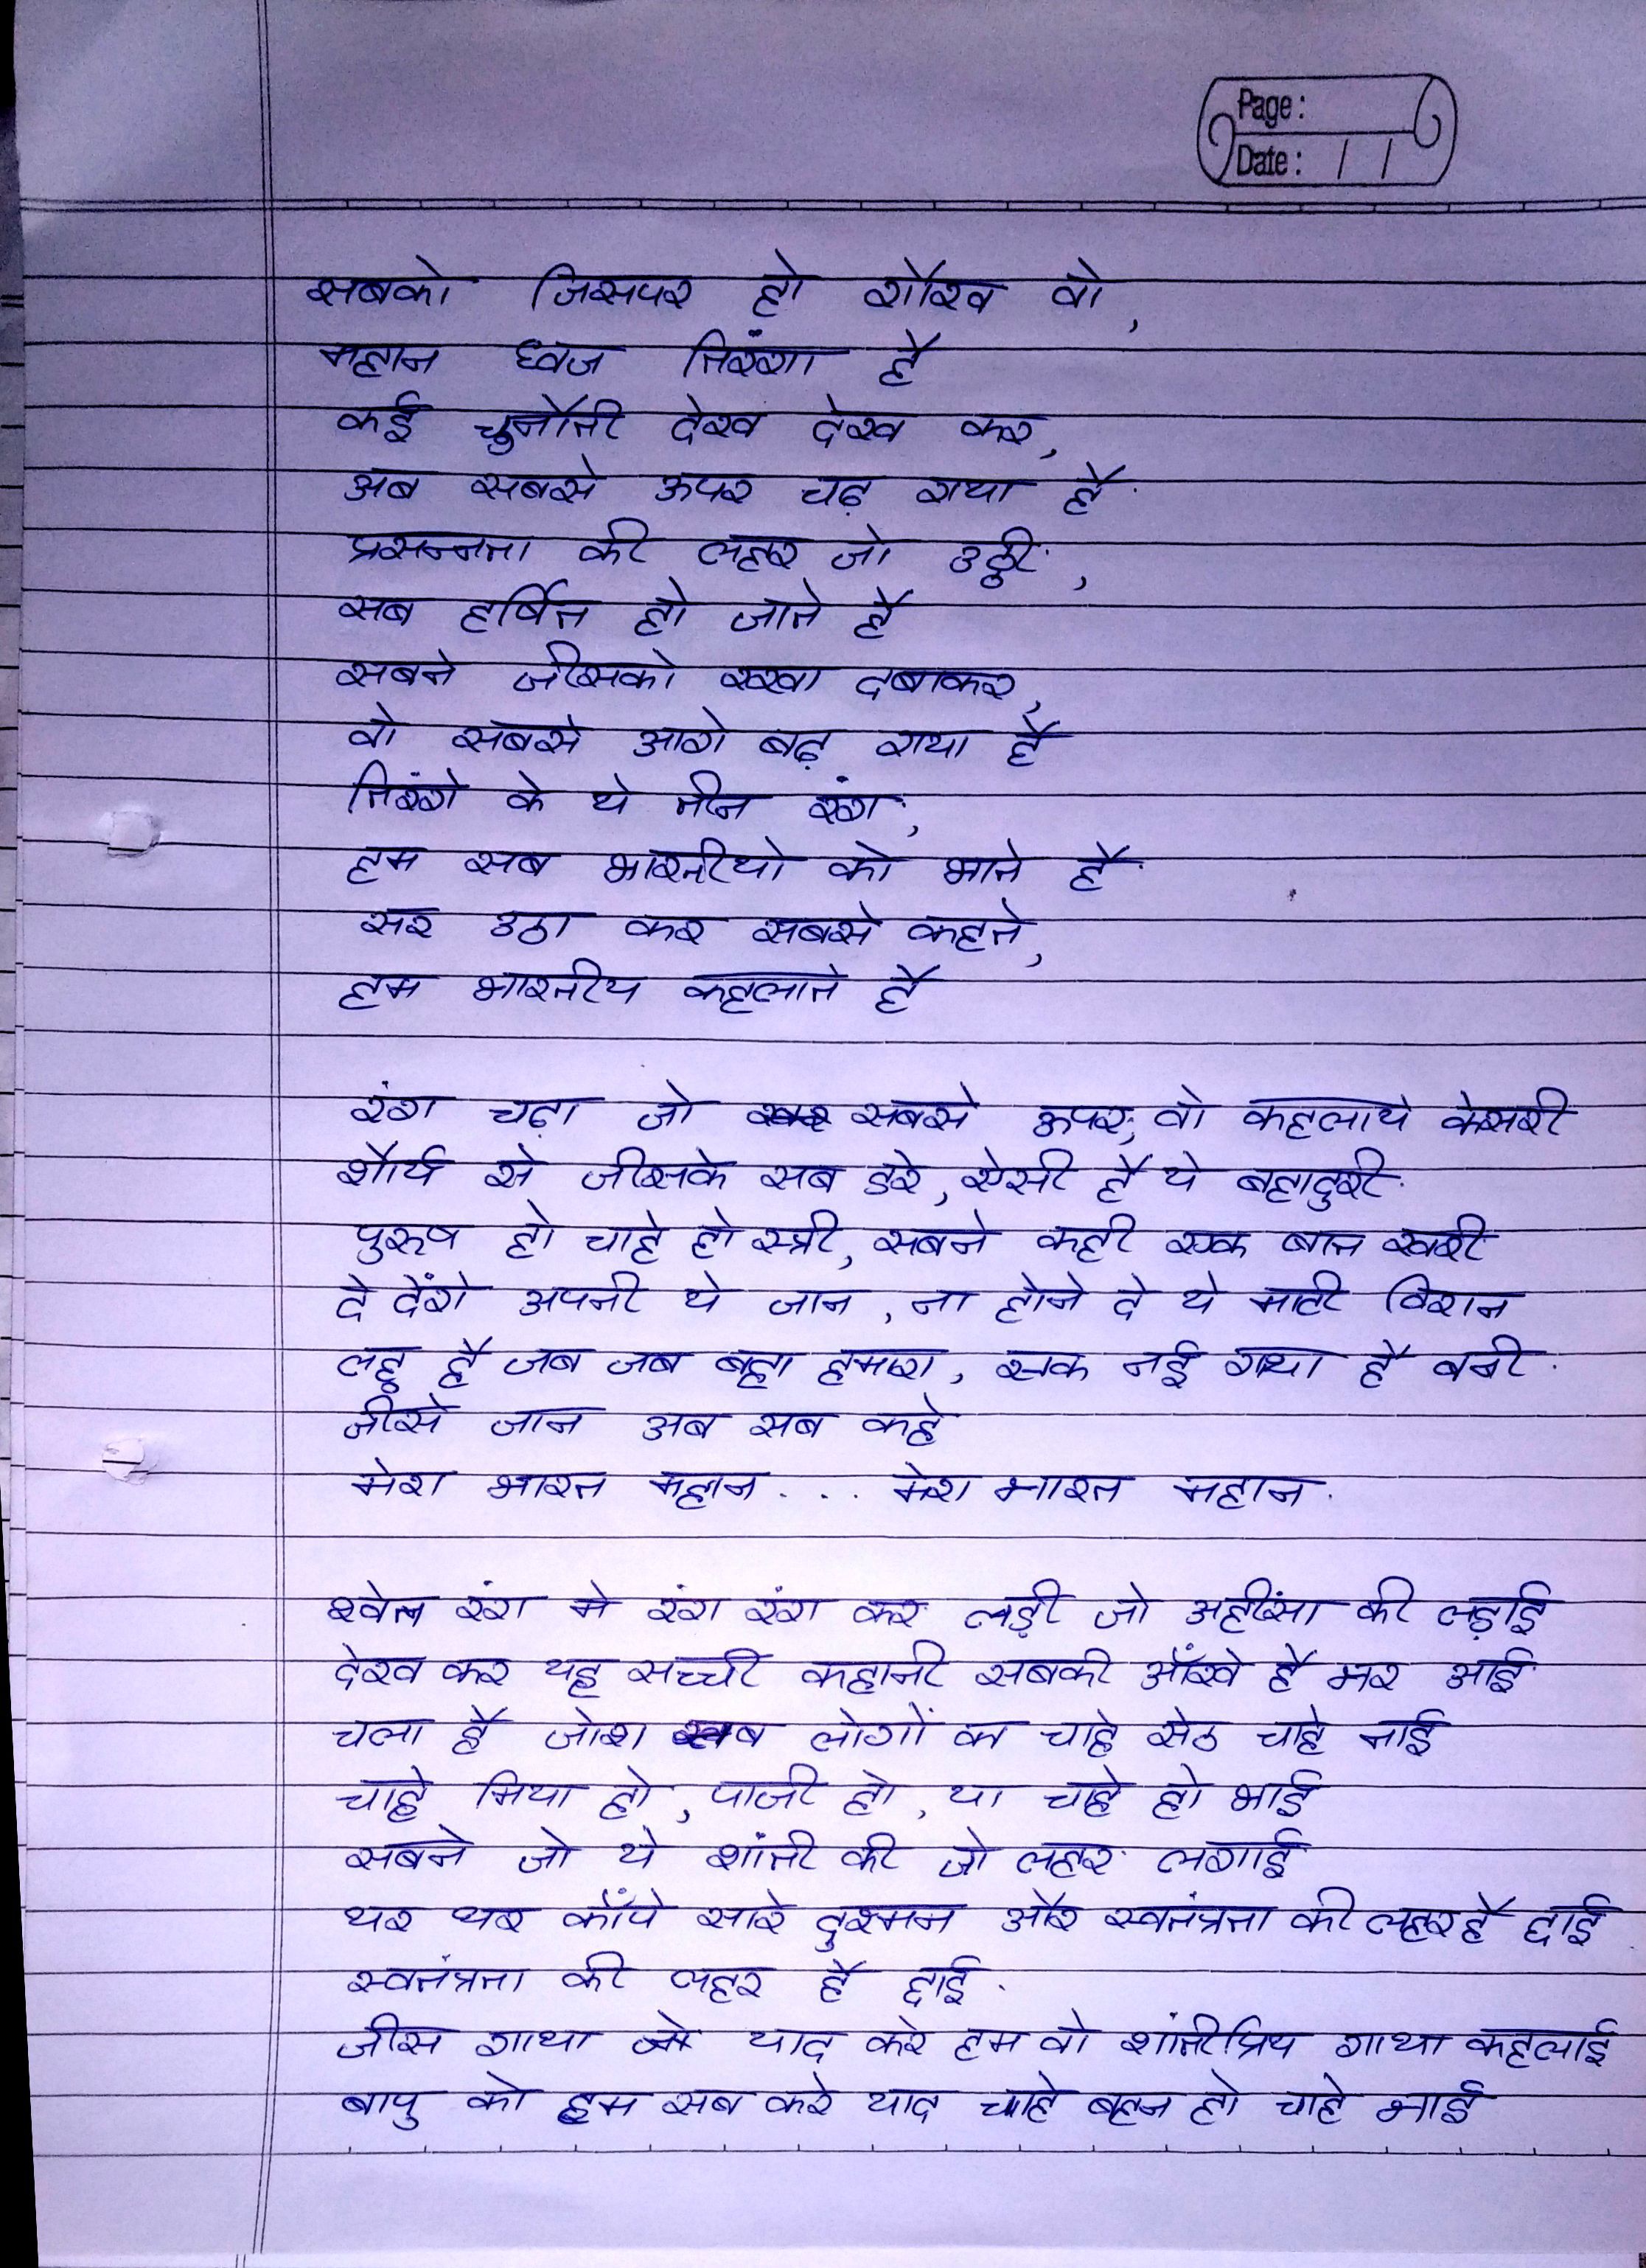 Page :
Date : / /
सबको जिसपर हो गौरव वो,
महान ध्वज तिरंगा है
कई चुनौती देख देख कर,
अब सबसे ऊपर चढ़ गया है.
प्रसन्नता की लहर जो उठ्ठी,
सब हर्षित हो जाते है
सबने जीसको रखा दबाकर,
वो सबसे आगे बढ़ गया है
तिरंगे के ये तीन रंग,
हम सब भारतीयो को भाते है
सर उठा कर सबसे कहते,
हम भारतीय कहलाते है
रंग चढ़ा जो सबसे ऊपर, वो कहलाये केसरी
शौर्य से जीसके सब डरे, ऐसी है ये बहादुरी.
पुरुष हो चाहे हो स्त्री, सबने कही एक बात खरी
दे देंगे अपनी ये जान, ना होने दे ये माटी विरान
लहू है जब जब बहा हमारा, एक नई गाथा है बनी.
जीसे जान अब सब कहे
मेरा भारत महान... मेरा भारत महान.
श्वेत रंग मे रंग रंग कर लड़ी जो अहींसा की लड़ाई
देख कर यह सच्ची कहानी सबकी आँखे है भर आई
चला है जोश सब लोगों का चाहे सेठ चाहे नाई
चाहे मिया हो, पाजी हो, या चाहे हो भाई
सबने जो ये शांती की जो लहर लगाई
थर थर काँपे सारे दुश्मन और स्वतंत्रता की लहर है छाई
स्वतंत्रता की लहर है छाई.
जीस गाथा को याद करे हम वो शांतीप्रिय गाथा कहलाई
बापु को हम सब करे याद चाहे बहन हो चाहे भाई